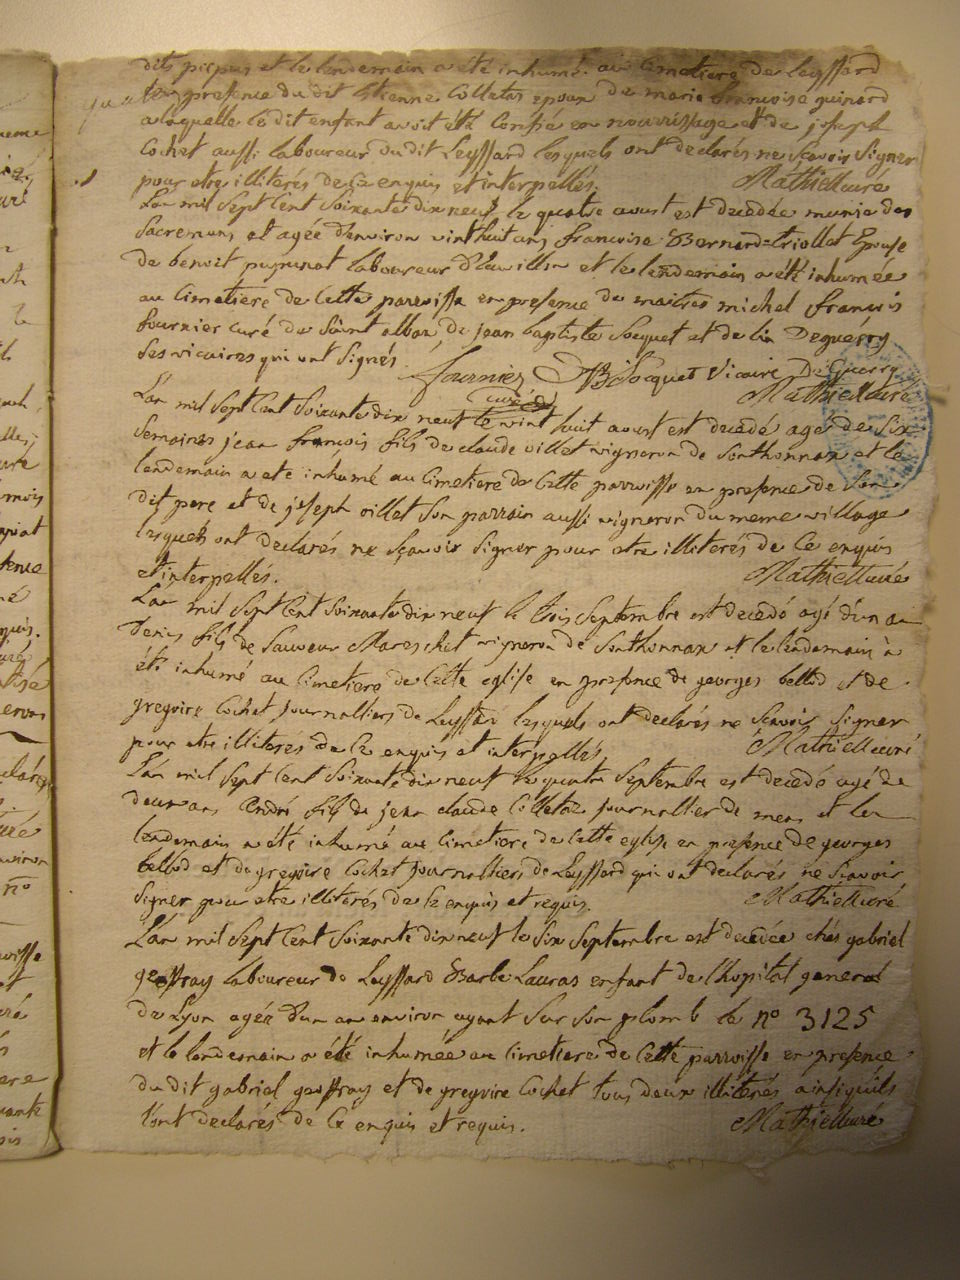 dits piepus et le lendemain a été inhumé au Cimetiere de Leyssard
en presence du dit Etienne Colletas epoux de marie francoise guinard
a laquelle le dit enfant avoit été Confié en nourrissage et de joseph
Cochet aussi laboureur du dit Leyssard lesquels ont declarés ne Scavoir Signer
pour etre illiterés de Ce enquis et interpellés. Mathieu curé
L'an mil Sept Cent Soixante dix neuf le quatre aoust est decedée munie des
Sacremens et agée d'environ vint huit ans francoise Bernard triollat Epouse
de benoit laboureur et le lendemain a été inhumée
au Cimetiére de Cette parroisse en presence de maitres michel françois
fournier curé de Saint alban, de jean baptiste Socquet et de Deguerry
Ses vicaires qui ont Signés. fournier curé JB Socquet Vicaire DeGuerry
Mathieu curé
L'an mil Sept Cent Soixante dix neuf le vint huit aoust est decedé agé de Six
Semaines jean françois fils de claude villet vigneron de Sonthonnax et le
lendemain a eté inhumé au Cimetiere de Cette parroisse en presence de Son
dit pere et de joseph villet Son parrain aussi vigneron du meme village
lesquels ont declarés ne Sçavoir Signer pour etre illiterés de Ce enquis
et interpellés. Mathieu curé
L'an mil Sept Cent Soixante dix neuf le trois Septembre est decedé agé d'un an
Denis fils de Sauveur Mareschal vigneron de Sonthonnax et le lendemain à
été inhumé au Cimetiere de Cette eglise en presence de georges bellod et de
gregoire Cochet journalliers de Leyssard lesquels ont declarés ne Scavoir Signer
pour etre illiteres de Ce enquis et interpellés. Mathieu curé
L'an mil Sept Cent Soixante dix neuf le quatre Septembre est decedé agé de
deux ans André fils de jean claude Colletaz journallier de mens et le
lendemain a été inhumé au Cimetiere de Cette eglise en presence de georges
bellod et de gregoire Cochet journalliers de Leyssard qui ont declarés ne Scavoir
Signer pour etre illiterés de Ce enquis et requis. Mathieu curé
L'an mil Sept Cent Soixante dix neuf le Six Septembre est decedée chés gabriel
geoffray laboureur de Leyssard Barbe Lauras enfant de l'hopital general
de Lyon agée d'un an environ ayant Sur Son plomb le nº 3125
et le lendemain a été inhumée au Cimetiere de Cette parroisse en presence
du dit gabriel geoffray et de gregoire Cochet tous deux illiterés ainsi qu'ils
l'ont declarés de Ce enquis et requis. Mathieu curé